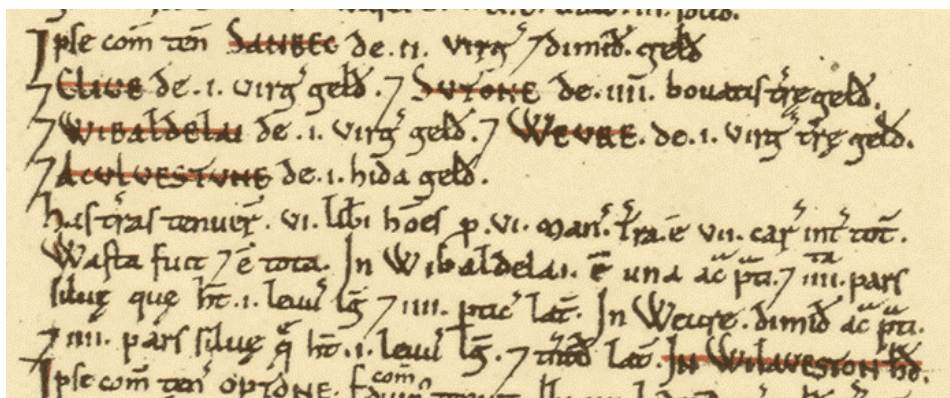 Ipse com̄ ten̄ SANBEC de .ii. virg̃ 7 dimid̄. gelđ
7 CLIVE de .i. virg̃ gelđ. 7 SUTONE de .iiii. bouatis tr̃ę gelđ.
7 WIBALDELAI de .i. virg̃ gelđ. 7 WEVRE. de .i. virg̃ tr̃ę gelđ.
7 ACULVESTUNE de .i. hida gelđ.
has tr̃as tenuer̃. vi. lib̄i hōēs p. vi. man̄. Tr̃a. ē vii. car̃ int̃ tot̄.
Wasta fuit 7 ē tota. In Wibaldelai. ē una ac̄ p̃ti. 7 iiii. pars
siluę quę ht̄ .i. leuū lḡ 7 .iiii. ptic̃ lat̄. In Weure. dimid̄ ac̄ p̃ti.
7 iiii. pars siluę q̃ ht̄ .i. leuū lḡ. 7 lat̄. IN WILWESTON HĐ.
Ipse com̄ ten̄ OPTONE. com̄